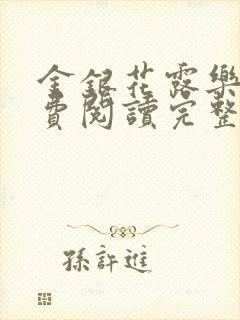 金銀花露樂
費閱讀完整
孫許進